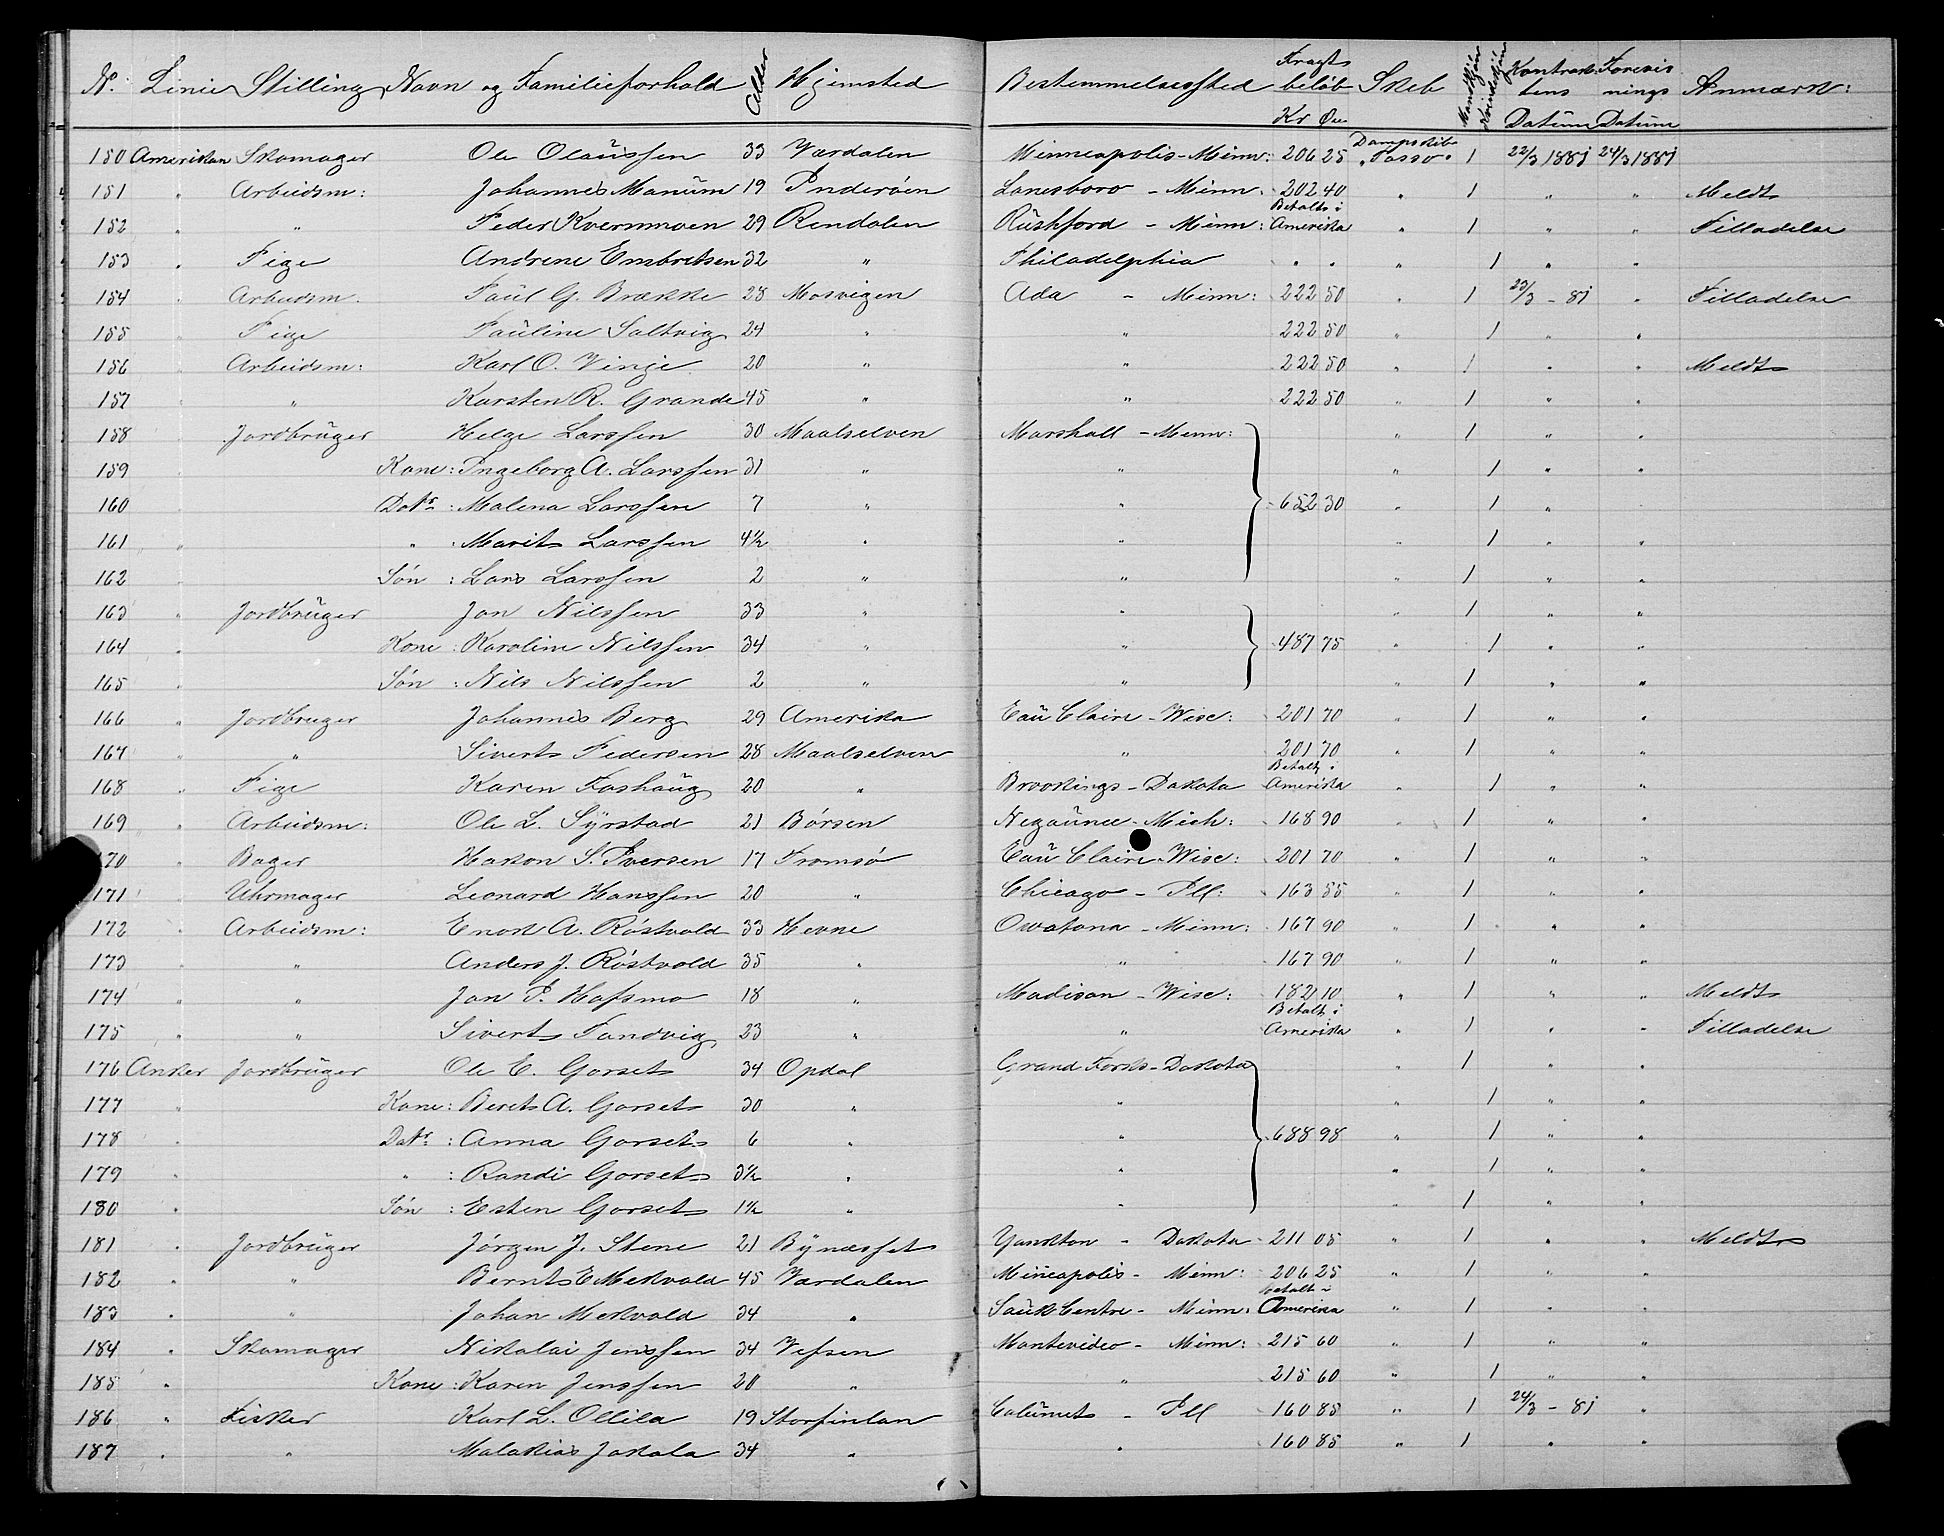 No. Linie Stilling Navn og Familieforhold Alder Hjemsted Bestemmelsessted Fragtbeløb Kr Øre Skib Mandkjøn Kvindekjøn Kontraktens Datum Forevisnings Datum Anmærk:
150 Amerikan Skomager Ole Olaussen 33 Værdalen Minneapolis - Minn: 206 25 Dampskib "Tasso" 1 22/3 1881 24/3 1881
151 " Arbeidsm: Johannes Manum 19 Inderøen Lanesboro - Minn: 202 40 " 1 " " Meldt
152 " " Peder Kvernmoen 29 Rendalen Rushford - Minn: Betalt i Amerika " 1 " " Tilladelse
153 " Pige Andrene Embretsen 32 " Philadelphia " " " 1 " "
154 " Arbeidsm: Paul G. Brække 28 Mosvigen Ada - Minn: 222 50 " 1 23/3 - 81 " Tilladelse
155 " Pige Pauline Saltvig 24 " " 222 50 " 1 " "
156 " Arbeidsm: Karl O. Vinje 20 " " 222 50 " 1 " " Meldt
157 " " Karsten R. Grande 45 " " 222 50 " 1 " "
158 " Jordbruger Helge Larssen 30 Maalselven Marshall - Minn: " 1 " "
159 " Kone: Ingeborg A. Larssen 31 " " " 1 " "
160 " Datr: Malena Larssen 7 " " 652 30 " 1 " "
161 " " : Marit Larssen 4½ " " " 1 " "
162 " Søn : Lars Larssen 2 " " " 1 " "
163 " Jordbruger Jon Nilssen 33 " " " 1 " "
164 " Kone : Karoline Nilssen 34 " " 487 75 " 1 " "
165 " Søn : Nils Nilssen 2 " " " 1 " "
166 " Jordbruger Johannes Berg 29 Amerika Eau Claire - Wisc: 201 70 " 1 " "
167 " " Sivert Pedersen 28 Maalselven " 201 70 1 " "
168 " Pige Karen Foshaug 20 " Brookings - Dakota Betalt i Amerika " 1 " "
169 " Arbeidsm: Ole L. Syrstad 21 Børsen Negaunee - Mich: 168 90 " 1 " "
170 " Bager Hakon S. Iversen 17 Tromsø Eau Claire - Wisc: 201 70 " 1 " "
171 " Uhrmager Leonard Hanssen 20 " Chicago - Ill: 163 55 " 1 " "
172 " Arbeidsm: Enok A. Røstvold 33 Hevne Owatona - Minn: 167 90 " 1 " "
173 " " Anders J. Røstvold 35 " " 167 90 " 1 " "
174 " " Jon P. Hafsmo 18 " Madison - Wisc: 182 10 " 1 " " Meldt
175 " " Sivert Tandvig 23 " " Betalt i Amerika " 1 " " Tilladelse
176 Anker Jordbruger Ole E. Gorset 34 Opdal Grand Forks - Dakota " 1 " "
177 " Kone: Beret A. Gorset 30 " " " 1 " "
178 " Datr: Anna Gorset 6 " " 688 98 " 1 " "
179 " " : Randi Gorset 3½ " " " 1 " "
180 " Søn : Esten Gorset 1½ " " " 1 " "
181 " Jordbruger Jørgen J. Stene 21 Bynæsset Yankton - Dakota 211 05 " 1 " " Meldt
182 " " Bernt E Mekvold 45 Værdalen Mineapolis - Minn: 206 25 " 1 " "
183 " " Johan Mekvold 34 " Sauk Centre - Minn: betalt i Amerika " 1 " "
184 " Skomager Nikolai Jenssen 34 Vefsen Montevideo - Minn: 215 60 " 1 " "
185 " Kone : Karen Jenssen 20 " " 215 60 " 1 " "
186 " Fisker Karl L. Ollila 19 Storfinlan Calumet - Ill 160 85 " 1 24/3 - 81 "
187 " " Malakias Jokala 34 " " 160 85 " 1 " "